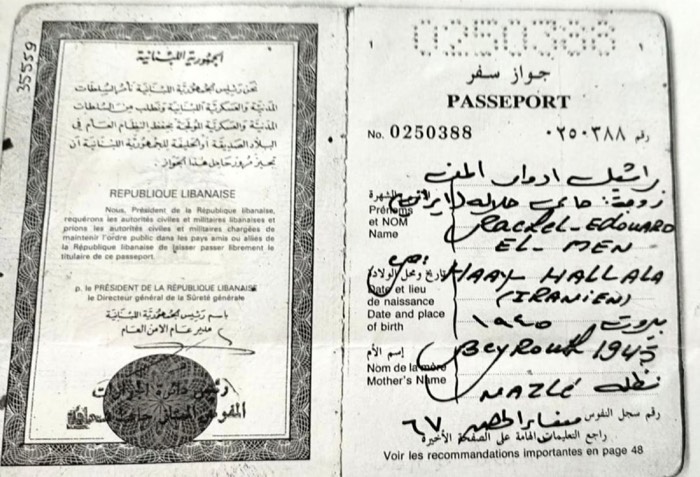 35559
الجمهورية اللبنانية
نحن رئيس الجمهورية اللبنانية نأمر السلطات
المدنية والعسكرية اللبنانية ونطلب من السلطات
المدنية والعسكرية المولجة بحفظ النظام العام في
البلاد الصديقة أو الحليفة للجمهورية اللبنانية أن
تجيز مرور حامل هذا الجواز
REPUBLIQUE LIBANAISE
Nous, Président de la République libanaise,
requérons les autorités civiles et militaires libanaises et
prions les autorités civiles et militaires chargées de
maintenir l'ordre public dans les pays amis ou alliés de
la République libanaise de laisser passer librement le
titulaire de ce passeport.
p. le PRÉSIDENT DE LA RÉPUBLIQUE LIBANAISE
le Directeur général de la Sûreté générale
باسم رئيس الجمهورية اللبنانية
مدير عام الأمن العام
رئيس دائرة الجوازات
المفوض الممتاز
1 0250388 ١
جواز سفر
PASSEPORT
No. 0250388 رقم ٠٢٥٠٣٨٨
راشيل ادوار المن
الشهرة زوجة
Prénoms
et NOM
Name
Rachel-EDOUARD
EL-MEN
تاريخ ومحل الولادة
HAAY HALLALA
Date et lieu
de naissance
Date and place
of birth
(IRANIEN)
بيروت ١٩٤٥
BEYROUTH 1945
إسم الأم
Nom de la mère
Mother's Name
NAZLÉ نظله
رقم سجل النفوس
٦٧
راجع التعليمات الهامة على الصفحة الأخيرة
Voir les recommandations importantes en page 48